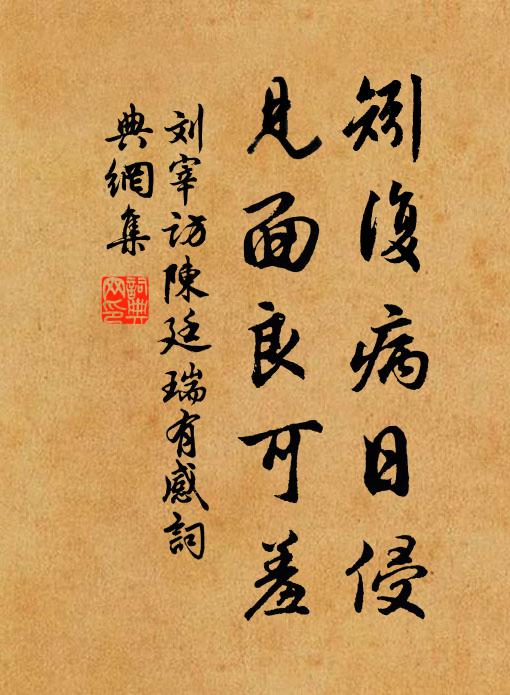 矧復病日侵
見面良可羞
刘宰访陳廷瑞有感詞
典網集
詞典
网印